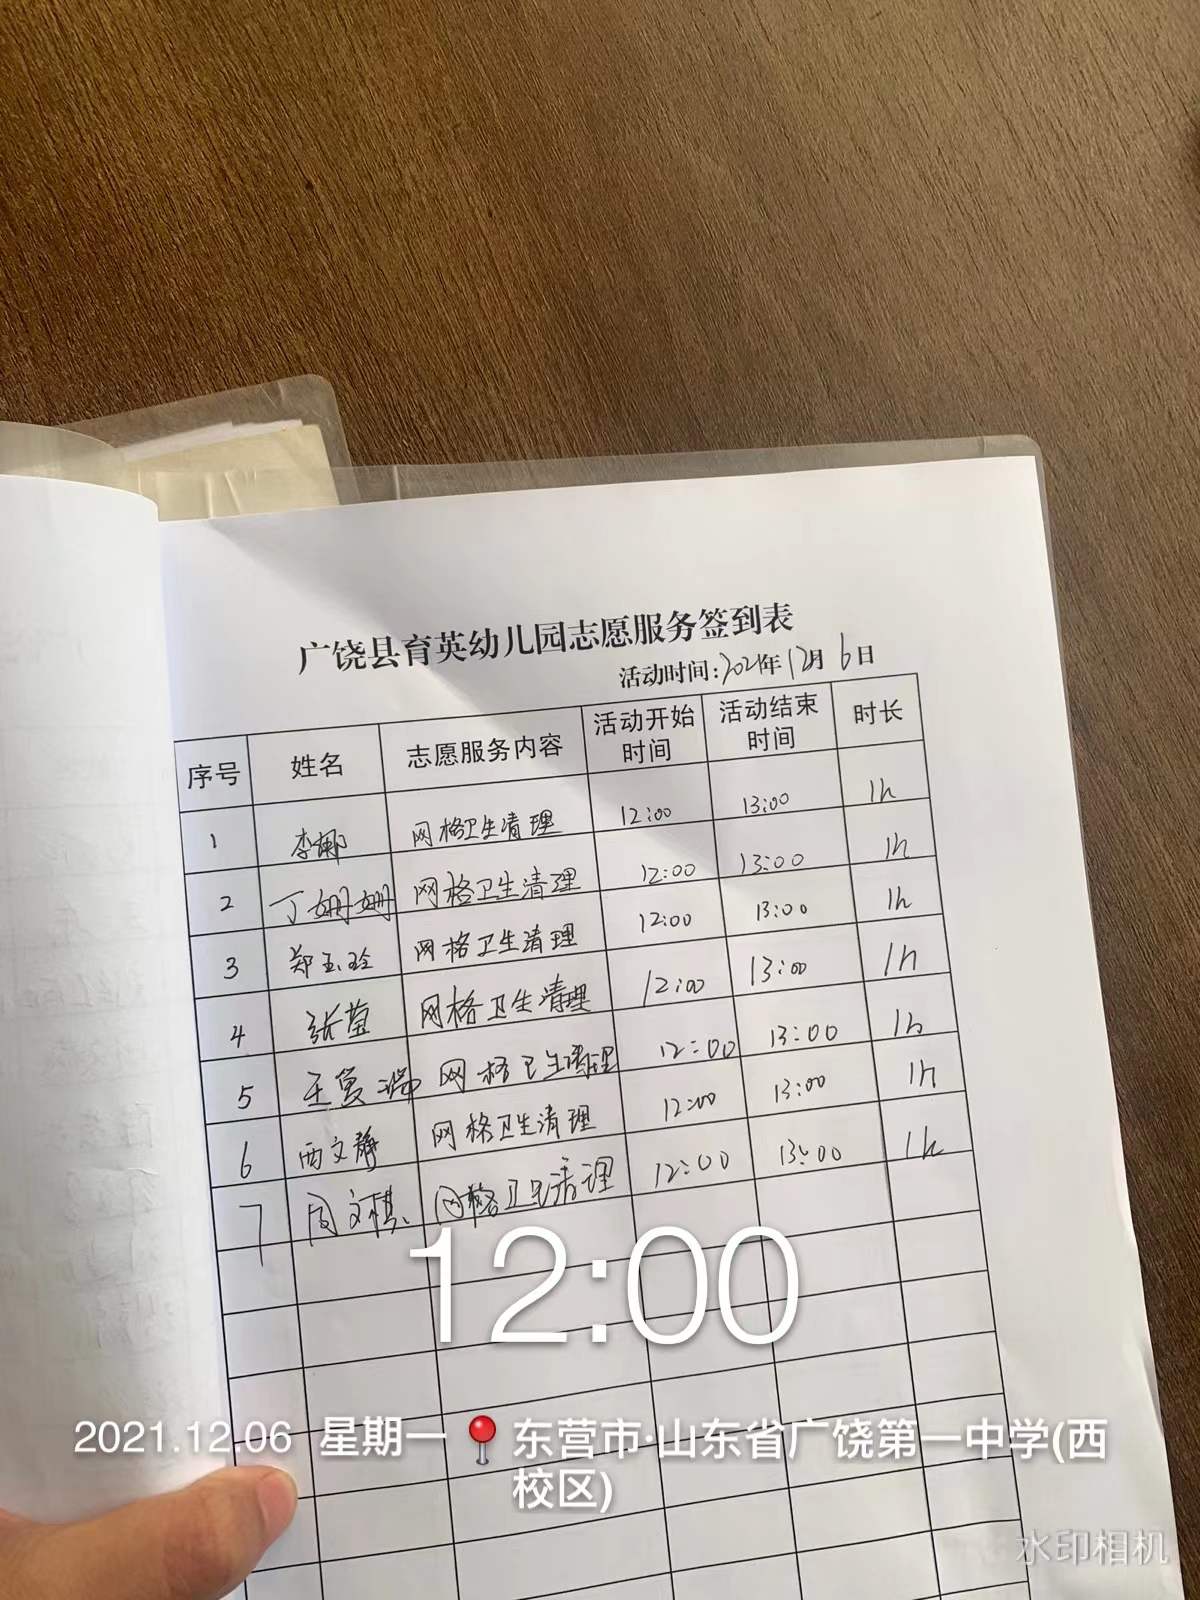 广饶县育英幼儿园志愿服务签到表
活动时间:2021年12月6日
序号 姓名 志愿服务内容 活动开始时间 活动结束时间 时长
1 李娜 网格卫生清理 12:00 13:00 1h
2 丁姗姗 网格卫生清理 12:00 13:00 1h
3 郑玉玲 网格卫生清理 12:00 13:00 1h
4 张莹 网格卫生清理 12:00 13:00 1h
5 王 瑞 网格卫生清理 12:00 13:00 1h
6 西文静 网格卫生清理 12:00 13:00 1h
7 周文棋 网格卫生清理 12:00 13:00 1h
12:00
2021.12.06 星期一 东营市·山东省广饶第一中学(西
校区)
水印相机